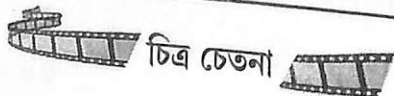 চিত্র চেতনা